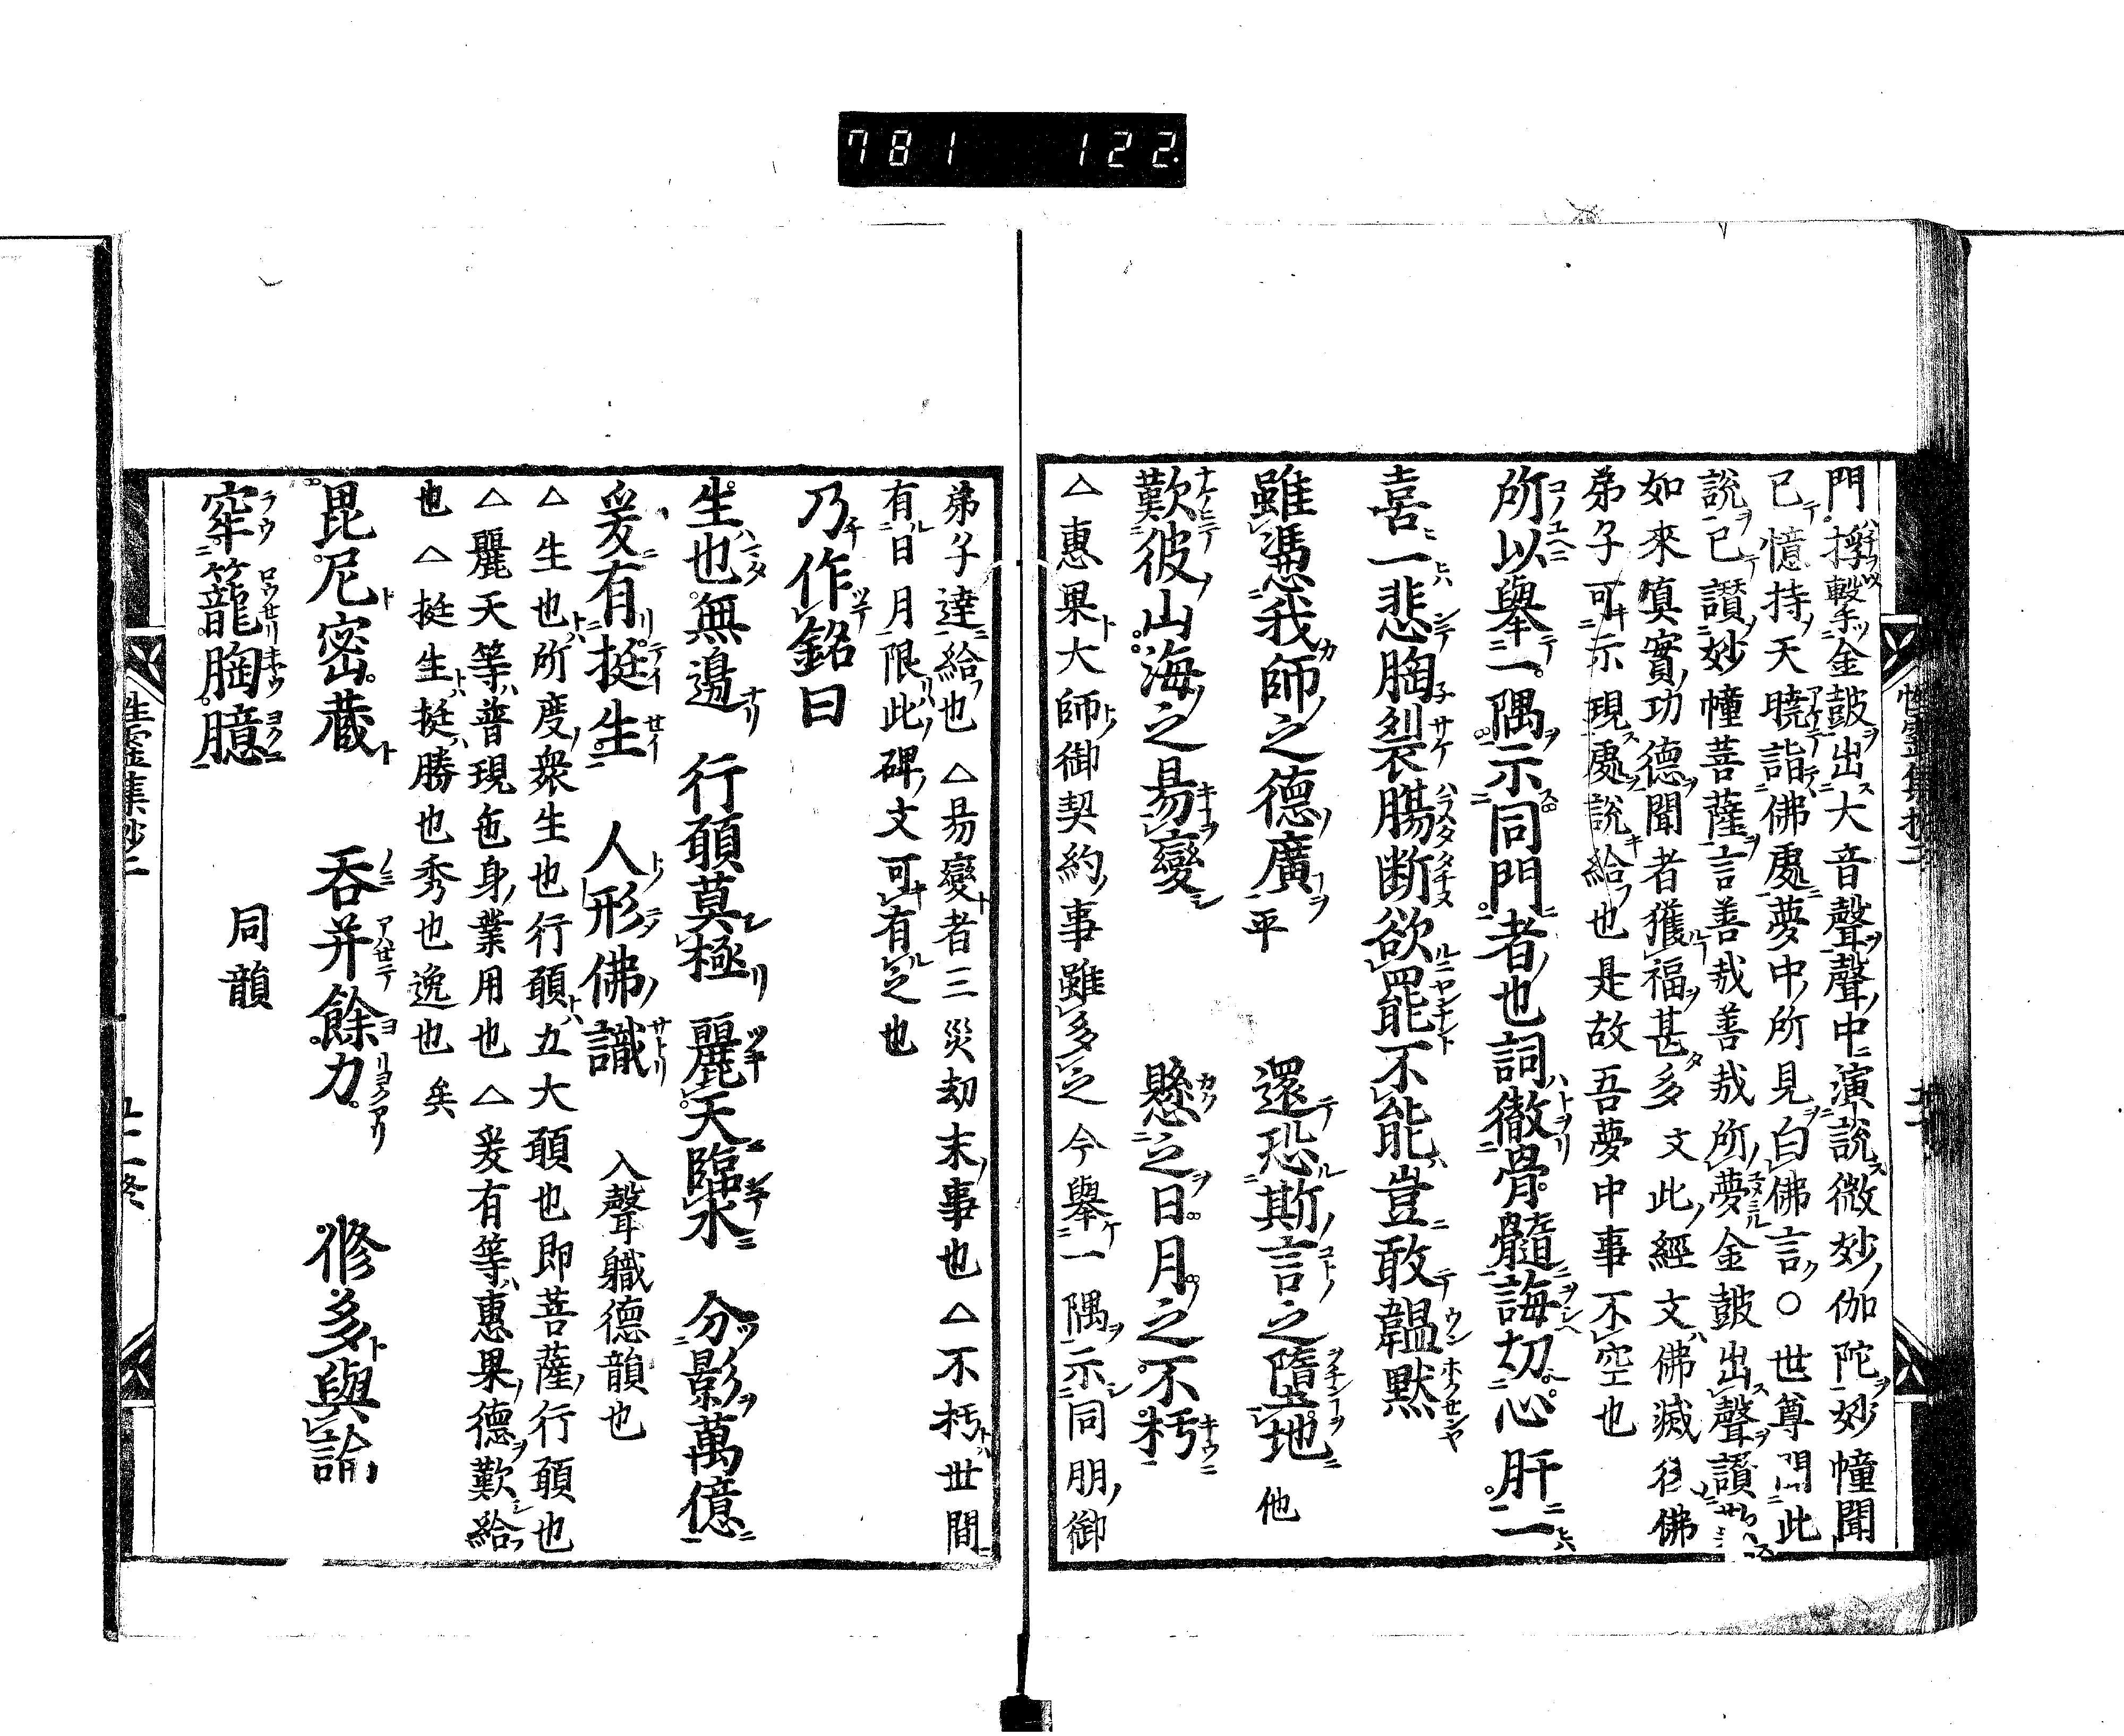 781 122
門桴擊金皷出大音聲聲中演說微妙伽陀妙幢聞
已憶持天曉詣佛處夢中所見白佛言○世尊此
說已讃妙幢菩薩言善哉善哉所夢金皷出聲讃
如來真實功德聞者獲福甚多文此經文佛滅後佛
弟子可示現處說給也是故吾夢中事不空也
所以舉一隅示同門者也詞徹骨髓誨切心肝一
喜一悲胸裂膓断欲罷不能豈敢韞默
雖憑我師之德廣平 還恐斯言之墮地他
歎彼山海之易變 懸之日月之不朽
△惠果大師御契約事雖多之今舉一隅示同朋御
弟子達給也△易變者三災劫末事也△不朽世間
有日月限此碑文可有之也
乃作銘曰
生也無邊 行願莫極 麗天臨水 分影萬億
爰有挺生 人形佛識 入聲職德韻也
△生也所度衆生也行願五大願也即菩薩行願也
△麗天等普現色身業用也△爰有等惠果德歎給
也△挺生挺勝也秀也逸也矣
毘尼密藏 吞并餘力 修多與論
牢籠胸臆 同韻
性靈集抄二